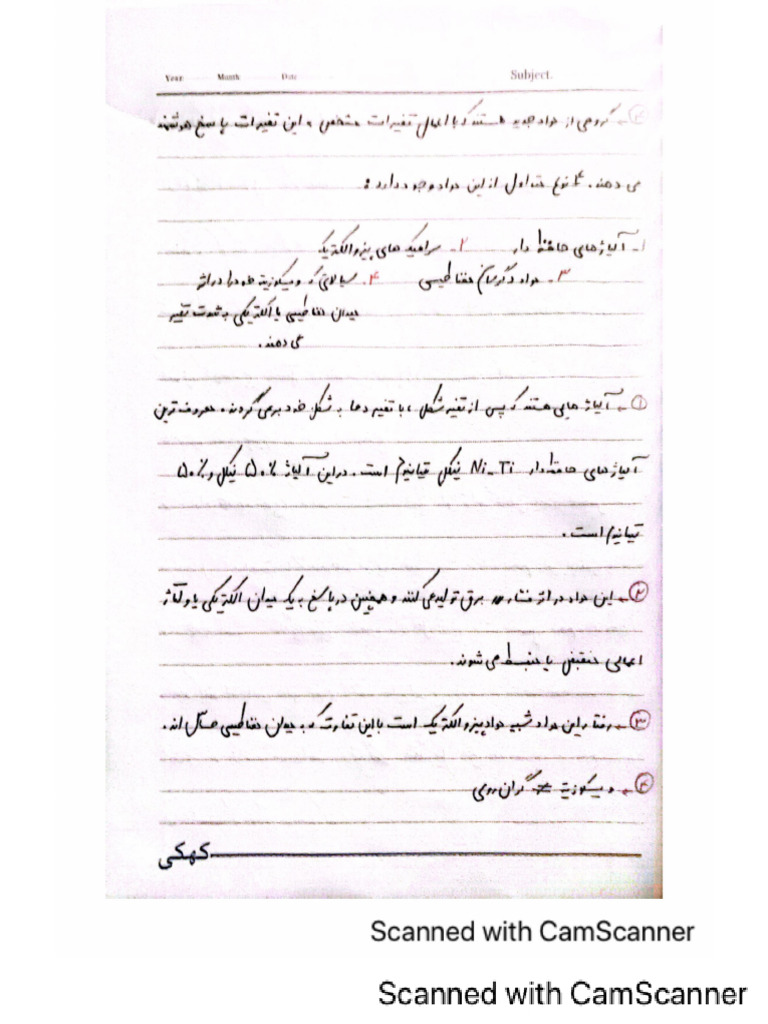 Year Month Date Subject.
۲ـ گروهی از مواد جدید هستند که با اعمال تغییرات مشخص به این تغییرات پاسخ هوشمند
می دهند. ۴ نوع متداول از این مواد وجود دارد:
۱ـ آلیاژهای حافظه دار ۲ـ سرامیک های پیزوالکتریک
۳ـ مواد مغناطیسی ۴ـ سیالاتی که ویسکوزیته خود را در اثر
میدان مغناطیسی یا الکتریکی به شدت تغییر
می دهند.
۱ـ آلیاژهایی هستند که پس از تغییر شکل، با تغییر دما به شکل خود برمی گردند. معروف ترین
آلیاژهای حافظه دار Ni-Ti نیکل تیتانیوم است. در این آلیاژ ۵۰٪ نیکل و ۵۰٪
تیتانیوم است.
۲ـ این مواد در اثر فشار برق تولید می کنند و همچنین در پاسخ به یک میدان الکتریکی یا ولتاژ
اعمالی منقبض یا منبسط می شوند.
۳ـ رفتار این مواد شبیه مواد پیزوالکتریک است با این تفاوت که به میدان مغناطیسی حساس اند.
۴ـ ویسکوزیته ≠ گران روی
کهکی
Scanned with CamScanner
Scanned with CamScanner